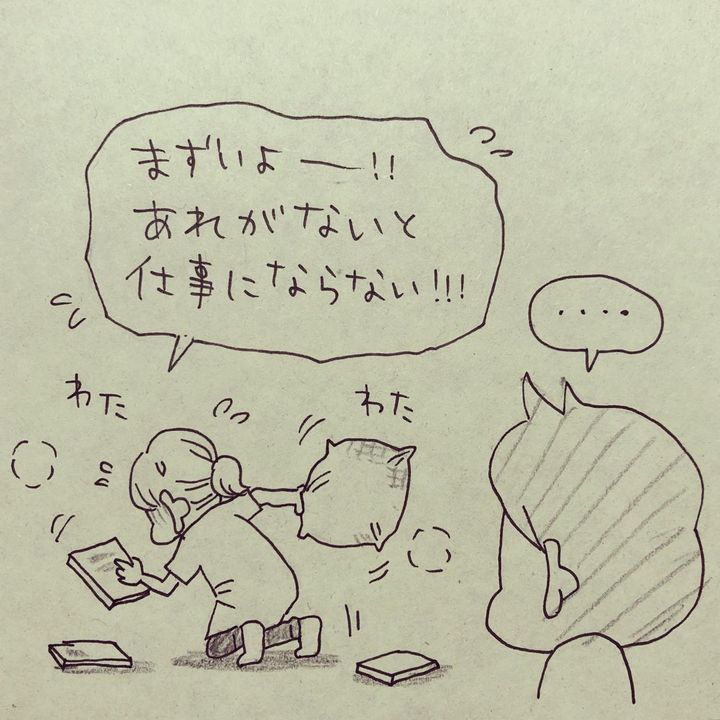 まずいよー!!
あれがないと
仕事にならない!!!
････
わた
わた